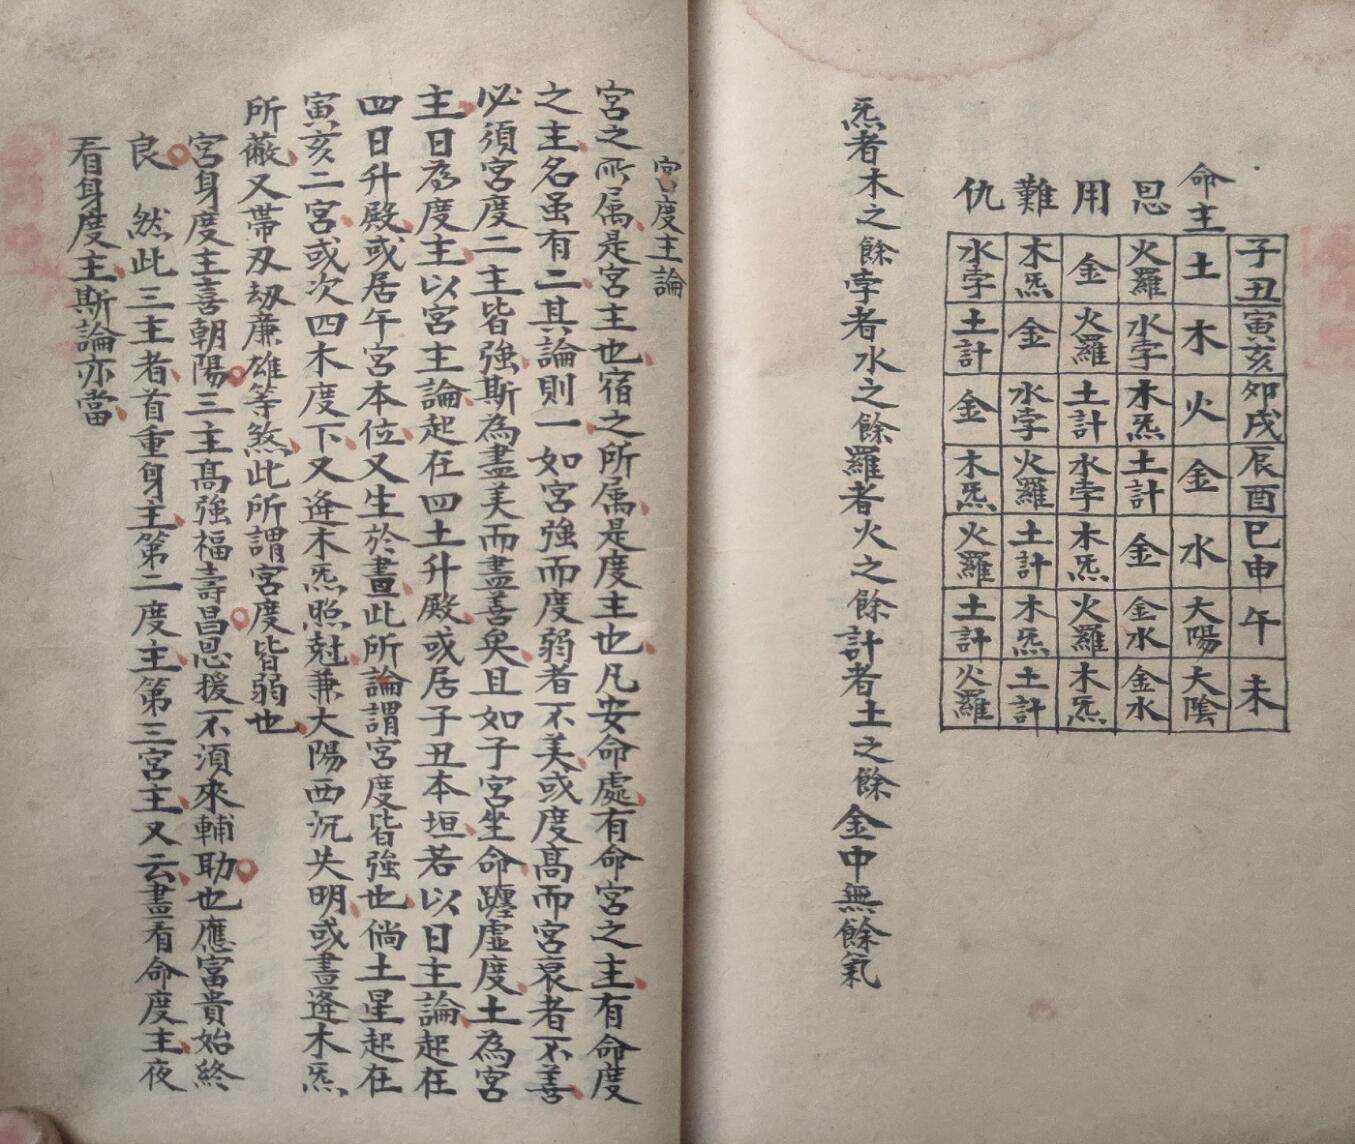 命主
恩
用
難
仇
子丑 寅亥 夘戌 辰酉 巳申 午 未
土 木 火 金 水 太陽 太陰
火羅 水孛 木炁 土計 金 金水 金水
金 火羅 土計 水孛 木炁 火羅 木炁
木炁 金 水孛 火羅 土計 木炁 土計
水孛 土計 金 木炁 火羅 土計 火羅
炁者木之餘孛者水之餘羅者火之餘計者土之餘金中無餘氣
宮度主論
宮之所属是宮主也宿之所属是度主也凡安命處有命宮之主有命度
之主名虽有二其論則一如宮強而度弱者不美或度高而宮衰者不善
必須宮度二主皆強斯為盡美而盡善矣且如子宮坐命躔虛度土為宮
主日為度主以宮主論起在四土升殿或居子丑本垣若以日主論起在
四日升殿或居午宮本位又生於晝此所論謂宮度皆強也倘土星起在
寅亥二宮或次四木度下又逢木炁照尅兼太陽西沉失明或晝逢木炁
所蔽又帶刄刼廉雄等煞此所謂宮度皆弱也
宮身度主喜朝陽三主高強福壽昌恩援不須來輔助也應富貴始終
良 然此三主者首重身主第二度主第三宮主又云晝看命度主夜
看身度主斯論亦當